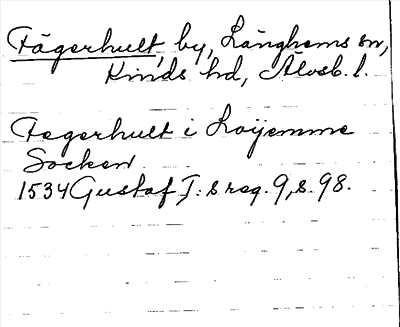 Fägerhult, by, Länghems sn,
Kinds hd, Älvsb. l.
Fegerhult i Loyemme
Socken.
1534 Gustaf I:s reg. 9, s. 98.